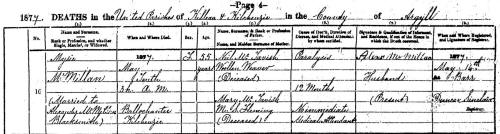 —Page 4—
1877. DEATHS in the United Parishes of Killean & Kilchenzie in the County of Argyll
No.
Name and Surname.
Rank or Profession, and whether Single, Married, or Widowed.
When and Where Died.
Sex.
Age.
Name, Surname, & Rank or Profession of Father.
Name, and Maiden Surname of Mother.
Cause of Death, Duration of Disease, and Medical Attendant by whom certified.
Signature & Qualification of Informant, and Residence, if out of the House in which the Death occurred.
When and Where Registered, and Signature of Registrar.
1877.
F.
55
years
Paralysis
McMillan
May
Husband
May 14th
3h. A.M.
(Deceased)
12 Months
(Present)
at Barr
16
(Married to
McMillan
Blacksmith)
Bellochantee
Kilchenzie
Mary McTavish
M.S. Fleming
(Deceased)
No immediate
Medical Attendant
Duncan Sinclair
Registrar